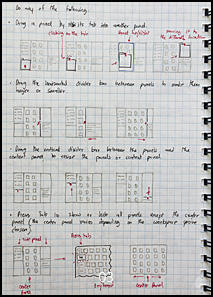 Do any of the following.
• Drag a panel by its tab into another panel.
clicking on the tab
• Drag the horizontal divider bars between panels to make them
larger or smaller.
• Drag the vertical divider bars between the panels and the
content panel to resize the panels or content panel.
• Press tab to show or hide all panels except the center
panel (the center panel varies depending on the workspace you've
chosen)
side panel
Press tab
center
Center Panel